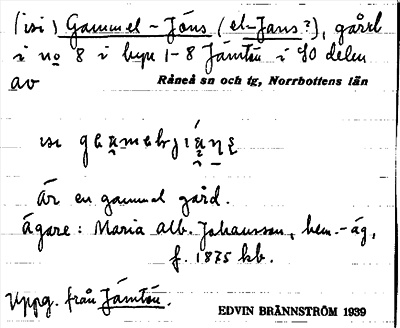 (isi) Gammel-Jöns (el-Jans?), gård
i no 8 i byn 1-8 Jämtön i SO delen
av Råneå sn och tg, Norrbottens län
isi
är en gammal gård.
Ägare: Maria Alb. Johansson, hem.-äg,
f. 1875 kb.
Uppg. från Jämtön.
EDVIN BRÄNNSTRÖM 1939